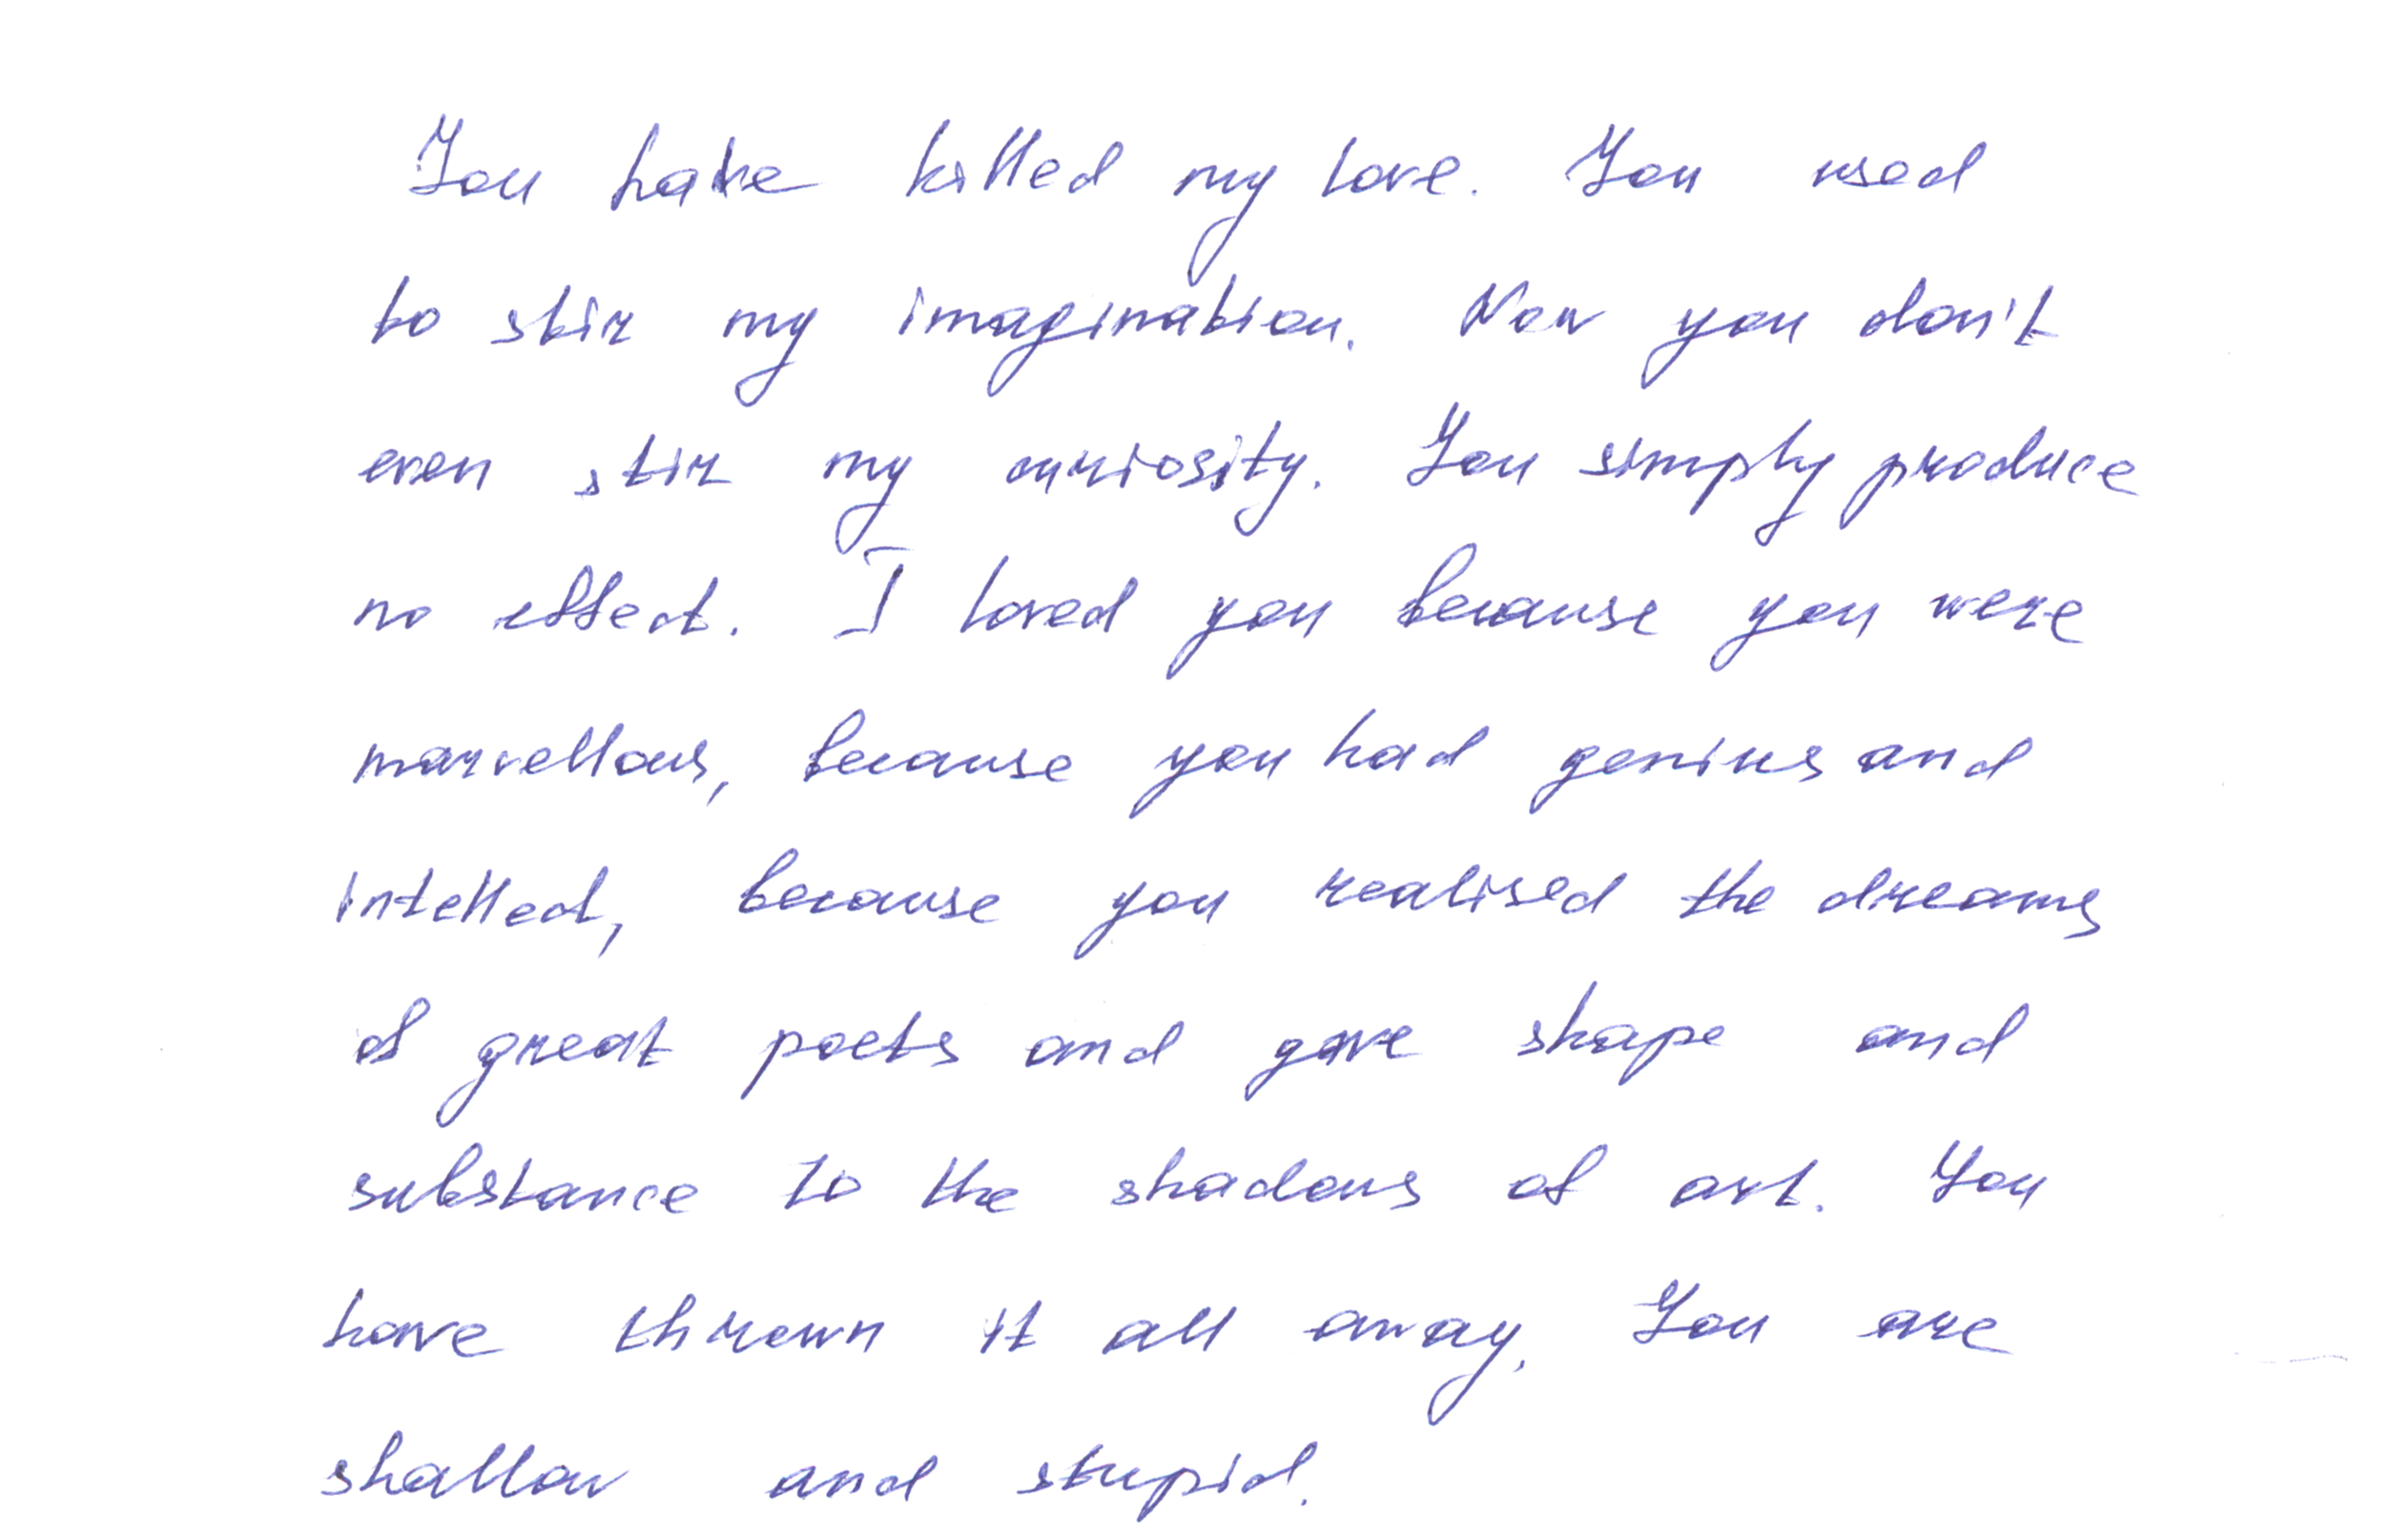 You have killed my love. You used
to stir my imagination. Now you don't
even stir my curiosity. You simply produce
no effect. I loved you because you were
marvellous, because you had genius and
intellect, because you realised the dreams
of great poets and gave shape and
substance to the shadows of art. You
have thrown it all away. You are
shallow and stupid.